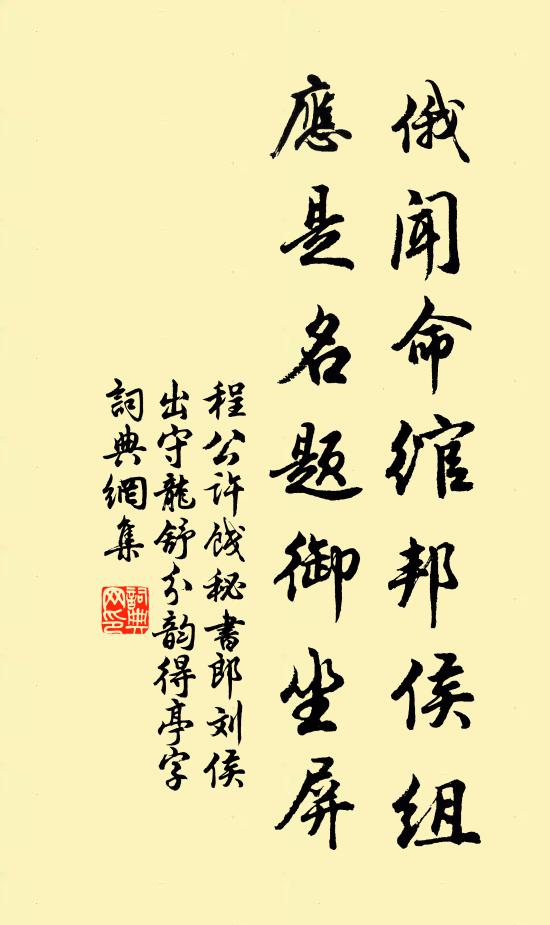 俄闻命绾邦侯组
應是名题御坐屏
程公许饯秘書郎刘侯
出守龍舒分韵得亭字
詞典網集
詞典网印